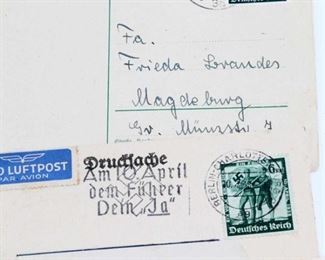 Fa.
Frieda Brandes
Magdeburg
Gr. Münzstr 7
LUFTPOST
PAR AVION
Drucksache
Am 10. April
dem Führer
Dein „Ja"
BERLIN-CHARLOTT
Deutsches Reich